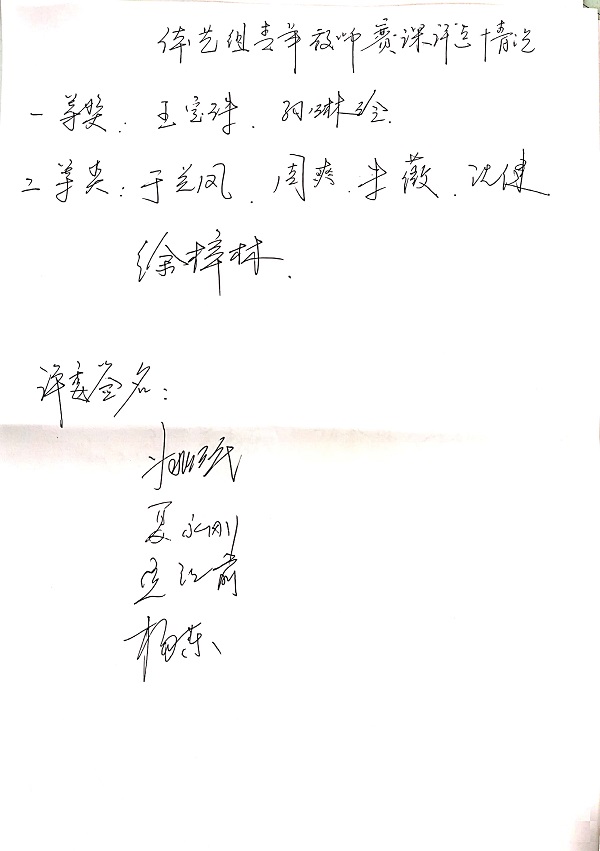 体艺组青年教师赛课评定情况
一等奖：王宝珠、孙琳玲.
二等类：于兰凤、周爽、朱薇、沈健
徐梓林.
评委签名：
夏永刚
杨东